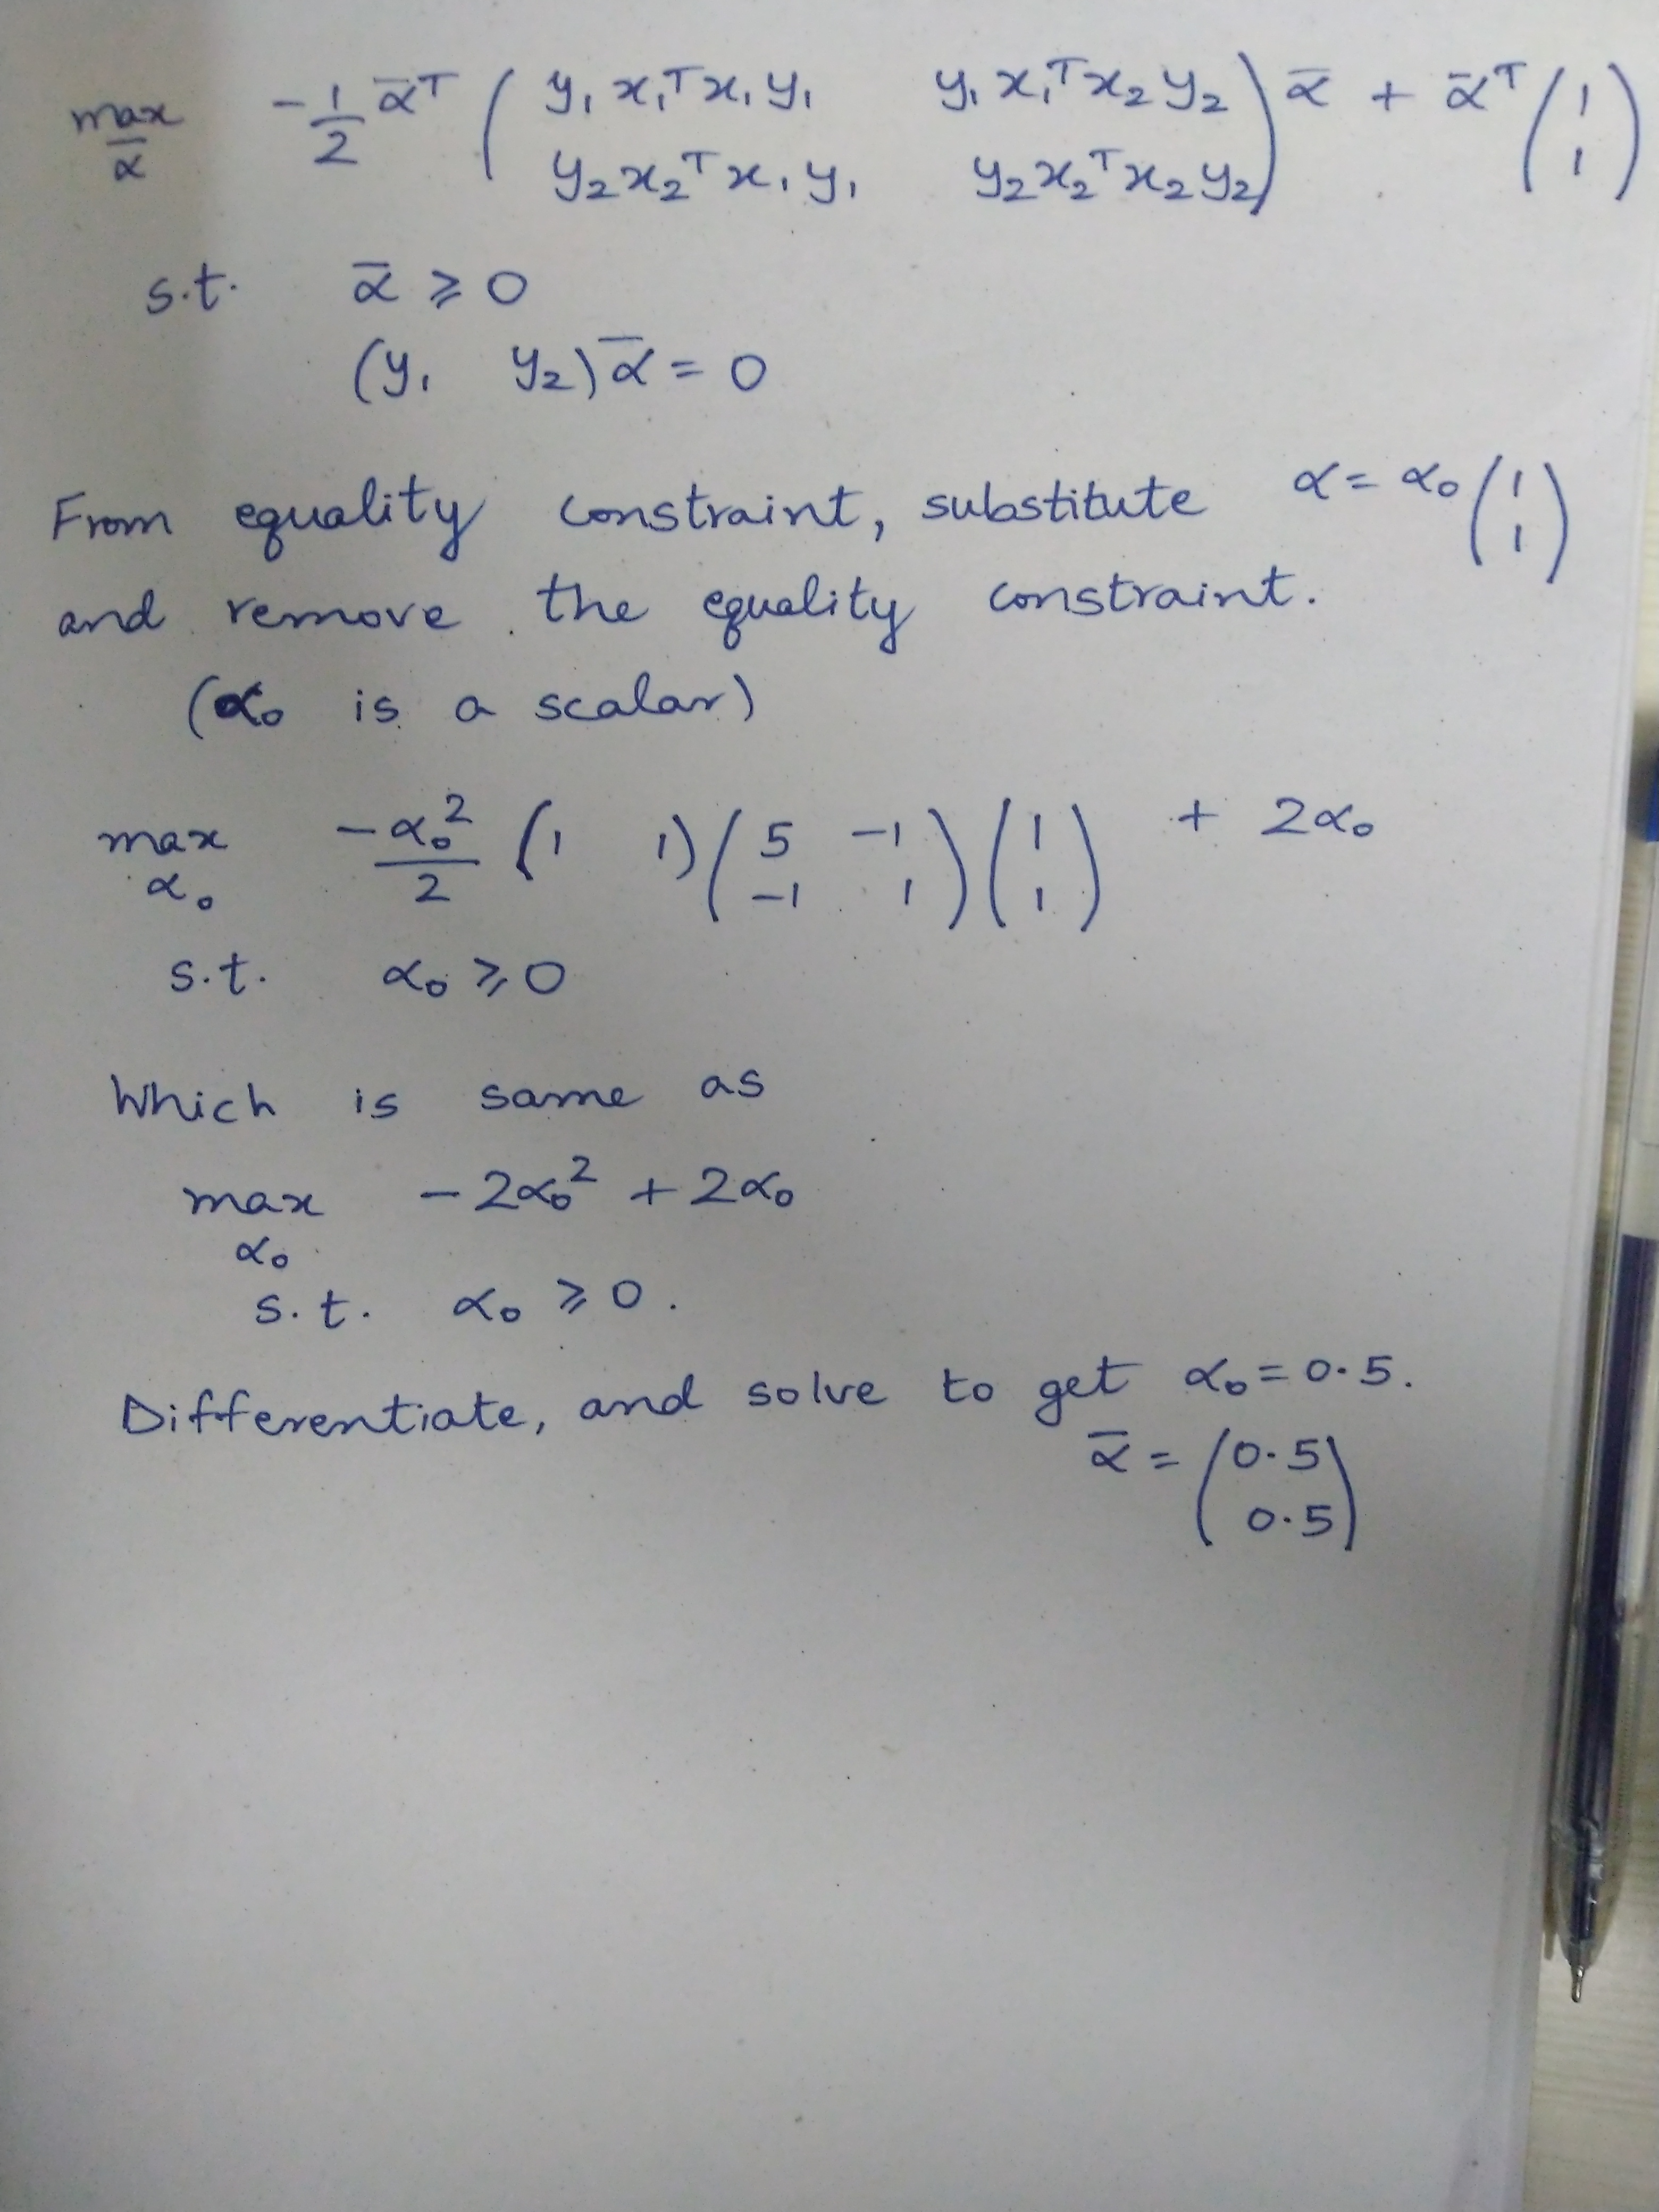 max/ᾱ -1/2 ᾱᵀ ( y₁x₁ᵀx₁y₁ y₁x₁ᵀx₂y₂ ; y₂x₂ᵀx₁y₁ y₂x₂ᵀx₂y₂ ) ᾱ + ᾱᵀ ( 1 ; 1 )
s.t. ᾱ ⩾ 0
(y₁ y₂)ᾱ = 0
From equality constraint, substitute α = α₀ ( 1 ; 1 )
and remove the equality constraint.
(α₀ is a scalar)
max α₀ -α₀²/2 (1 1) ( 5 -1 ; -1 1 ) ( 1 ; 1 ) + 2α₀
s.t. α₀ ⩾ 0
Which is same as
max α₀ - 2α₀² + 2α₀
s.t. α₀ ⩾ 0.
Differentiate, and solve to get α₀ = 0.5.
ᾱ = ( 0.5 ; 0.5 )